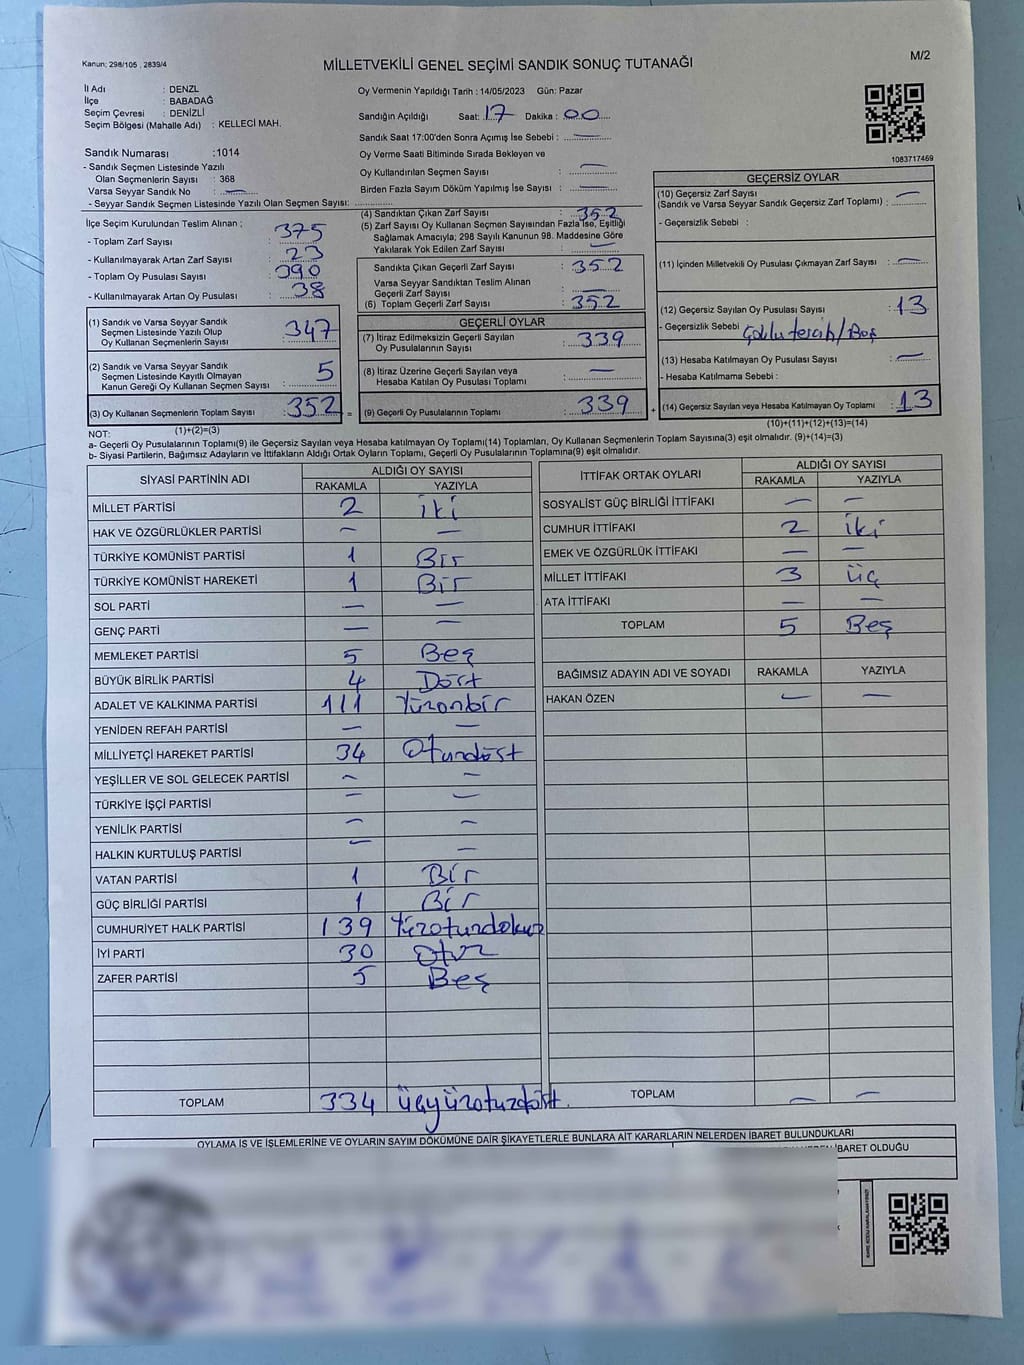 Kanun: 298/105 , 2839/4
M/2
MİLLETVEKİLİ GENEL SEÇİMİ SANDIK SONUÇ TUTANAĞI
İl Adı : DENZL
İlçe : BABADAĞ
Seçim Çevresi : DENİZLİ
Seçim Bölgesi (Mahalle Adı) : KELLECİ MAH.
Sandık Numarası :1014
- Sandık Seçmen Listesinde Yazılı
Olan Seçmenlerin Sayısı : 368
Varsa Seyyar Sandık No : —
- Seyyar Sandık Seçmen Listesinde Yazılı Olan Seçmen Sayısı: ..............
Oy Vermenin Yapıldığı Tarih : 14/05/2023 Gün: Pazar
Sandığın Açıldığı Saat: 17 Dakika : 00
Sandık Saat 17:00'den Sonra Açımış İse Sebebi : —
Oy Verme Saati Bitiminde Sırada Bekleyen ve
Oy Kullandırılan Seçmen Sayısı : —
Birden Fazla Sayım Döküm Yapılmış İse Sayısı : —
1083717469
İlçe Seçim Kurulundan Teslim Alınan ;
- Toplam Zarf Sayısı : 375
- Kullanılmayarak Artan Zarf Sayısı : 23
- Toplam Oy Pusulası Sayısı : 390
- Kullanılmayarak Artan Oy Pusulası : 38
(1) Sandık ve Varsa Seyyar Sandık
Seçmen Listesinde Yazılı Olup
Oy Kullanan Seçmenlerin Sayısı : 347
(2) Sandık ve Varsa Seyyar Sandık
Seçmen Listesinde Kayıtlı Olmayan
Kanun Gereği Oy Kullanan Seçmen Sayısı : 5
(3) Oy Kullanan Seçmenlerin Toplam Sayısı : 352 =
(1)+(2)=(3)
(4) Sandıktan Çıkan Zarf Sayısı : 352
(5) Zarf Sayısı Oy Kullanan Seçmen Sayısından Fazla İse, Eşitliği
Sağlamak Amacıyla; 298 Sayılı Kanunun 98. Maddesine Göre
Yakılarak Yok Edilen Zarf Sayısı : —
Sandıkta Çıkan Geçerli Zarf Sayısı : 352
Varsa Seyyar Sandıktan Teslim Alınan
Geçerli Zarf Sayısı : —
(6) Toplam Geçerli Zarf Sayısı : 352
GEÇERLİ OYLAR
(7) İtiraz Edilmeksizin Geçerli Sayılan
Oy Pusulalarının Sayısı : 339
(8) İtiraz Üzerine Geçerli Sayılan veya
Hesaba Katılan Oy Pusulası Toplamı : —
(9) Geçerli Oy Pusulalarının Toplamı : 339 +
GEÇERSİZ OYLAR
(10) Geçersiz Zarf Sayısı
(Sandık ve Varsa Seyyar Sandık Geçersiz Zarf Toplamı) : —
- Geçersizlik Sebebi :
(11) İçinden Milletvekili Oy Pusulası Çıkmayan Zarf Sayısı : —
(12) Geçersiz Sayılan Oy Pusulası Sayısı : 13
- Geçersizlik Sebebi Çoklu tercih/Boş
(13) Hesaba Katılmayan Oy Pusulası Sayısı : —
- Hesaba Katılmama Sebebi :
(14) Geçersiz Sayılan veya Hesaba Katılmayan Oy Toplamı : 13
(10)+(11)+(12)+(13)=(14)
NOT:
a- Geçerli Oy Pusulalarının Toplamı(9) ile Geçersiz Sayılan veya Hesaba katılmayan Oy Toplamı(14) Toplamları, Oy Kullanan Seçmenlerin Toplam Sayısına(3) eşit olmalıdır. (9)+(14)=(3)
b- Siyasi Partilerin, Bağımsız Adayların ve İttifakların Aldığı Ortak Oyların Toplamı, Geçerli Oy Pusulalarının Toplamına(9) eşit olmalıdır.
SİYASİ PARTİNİN ADI ALDIĞI OY SAYISI
RAKAMLA YAZIYLA
MİLLET PARTİSİ 2 iki
HAK VE ÖZGÜRLÜKLER PARTİSİ — —
TÜRKİYE KOMÜNİST PARTİSİ 1 Bir
TÜRKİYE KOMÜNİST HAREKETİ 1 Bir
SOL PARTİ — —
GENÇ PARTİ — —
MEMLEKET PARTİSİ 5 Beş
BÜYÜK BİRLİK PARTİSİ 4 Dört
ADALET VE KALKINMA PARTİSİ 111 Yüzonbir
YENİDEN REFAH PARTİSİ — —
MİLLİYETÇİ HAREKET PARTİSİ 34 Otuzdört
YEŞİLLER VE SOL GELECEK PARTİSİ — —
TÜRKİYE İŞÇİ PARTİSİ — —
YENİLİK PARTİSİ — —
HALKIN KURTULUŞ PARTİSİ — —
VATAN PARTİSİ 1 Bir
GÜÇ BİRLİĞİ PARTİSİ 1 Bir
CUMHURİYET HALK PARTİSİ 139 Yüzotuzdokuz
İYİ PARTİ 30 Otuz
ZAFER PARTİSİ 5 Beş
TOPLAM 334 üçyüzotuzdört.
İTTİFAK ORTAK OYLARI ALDIĞI OY SAYISI
RAKAMLA YAZIYLA
SOSYALİST GÜÇ BİRLİĞİ İTTİFAKI — —
CUMHUR İTTİFAKI 2 iki
EMEK VE ÖZGÜRLÜK İTTİFAKI — —
MİLLET İTTİFAKI 3 üç
ATA İTTİFAKI — —
TOPLAM 5 Beş
BAĞIMSIZ ADAYIN ADI VE SOYADI RAKAMLA YAZIYLA
HAKAN ÖZEN — —
TOPLAM — —
OYLAMA İŞ VE İŞLEMLERİNE VE OYLARIN SAYIM DÖKÜMÜNE DAİR ŞİKAYETLERLE BUNLARA AİT KARARLARIN NELERDEN İBARET BULUNDUKLARI
İBARET OLDUĞU